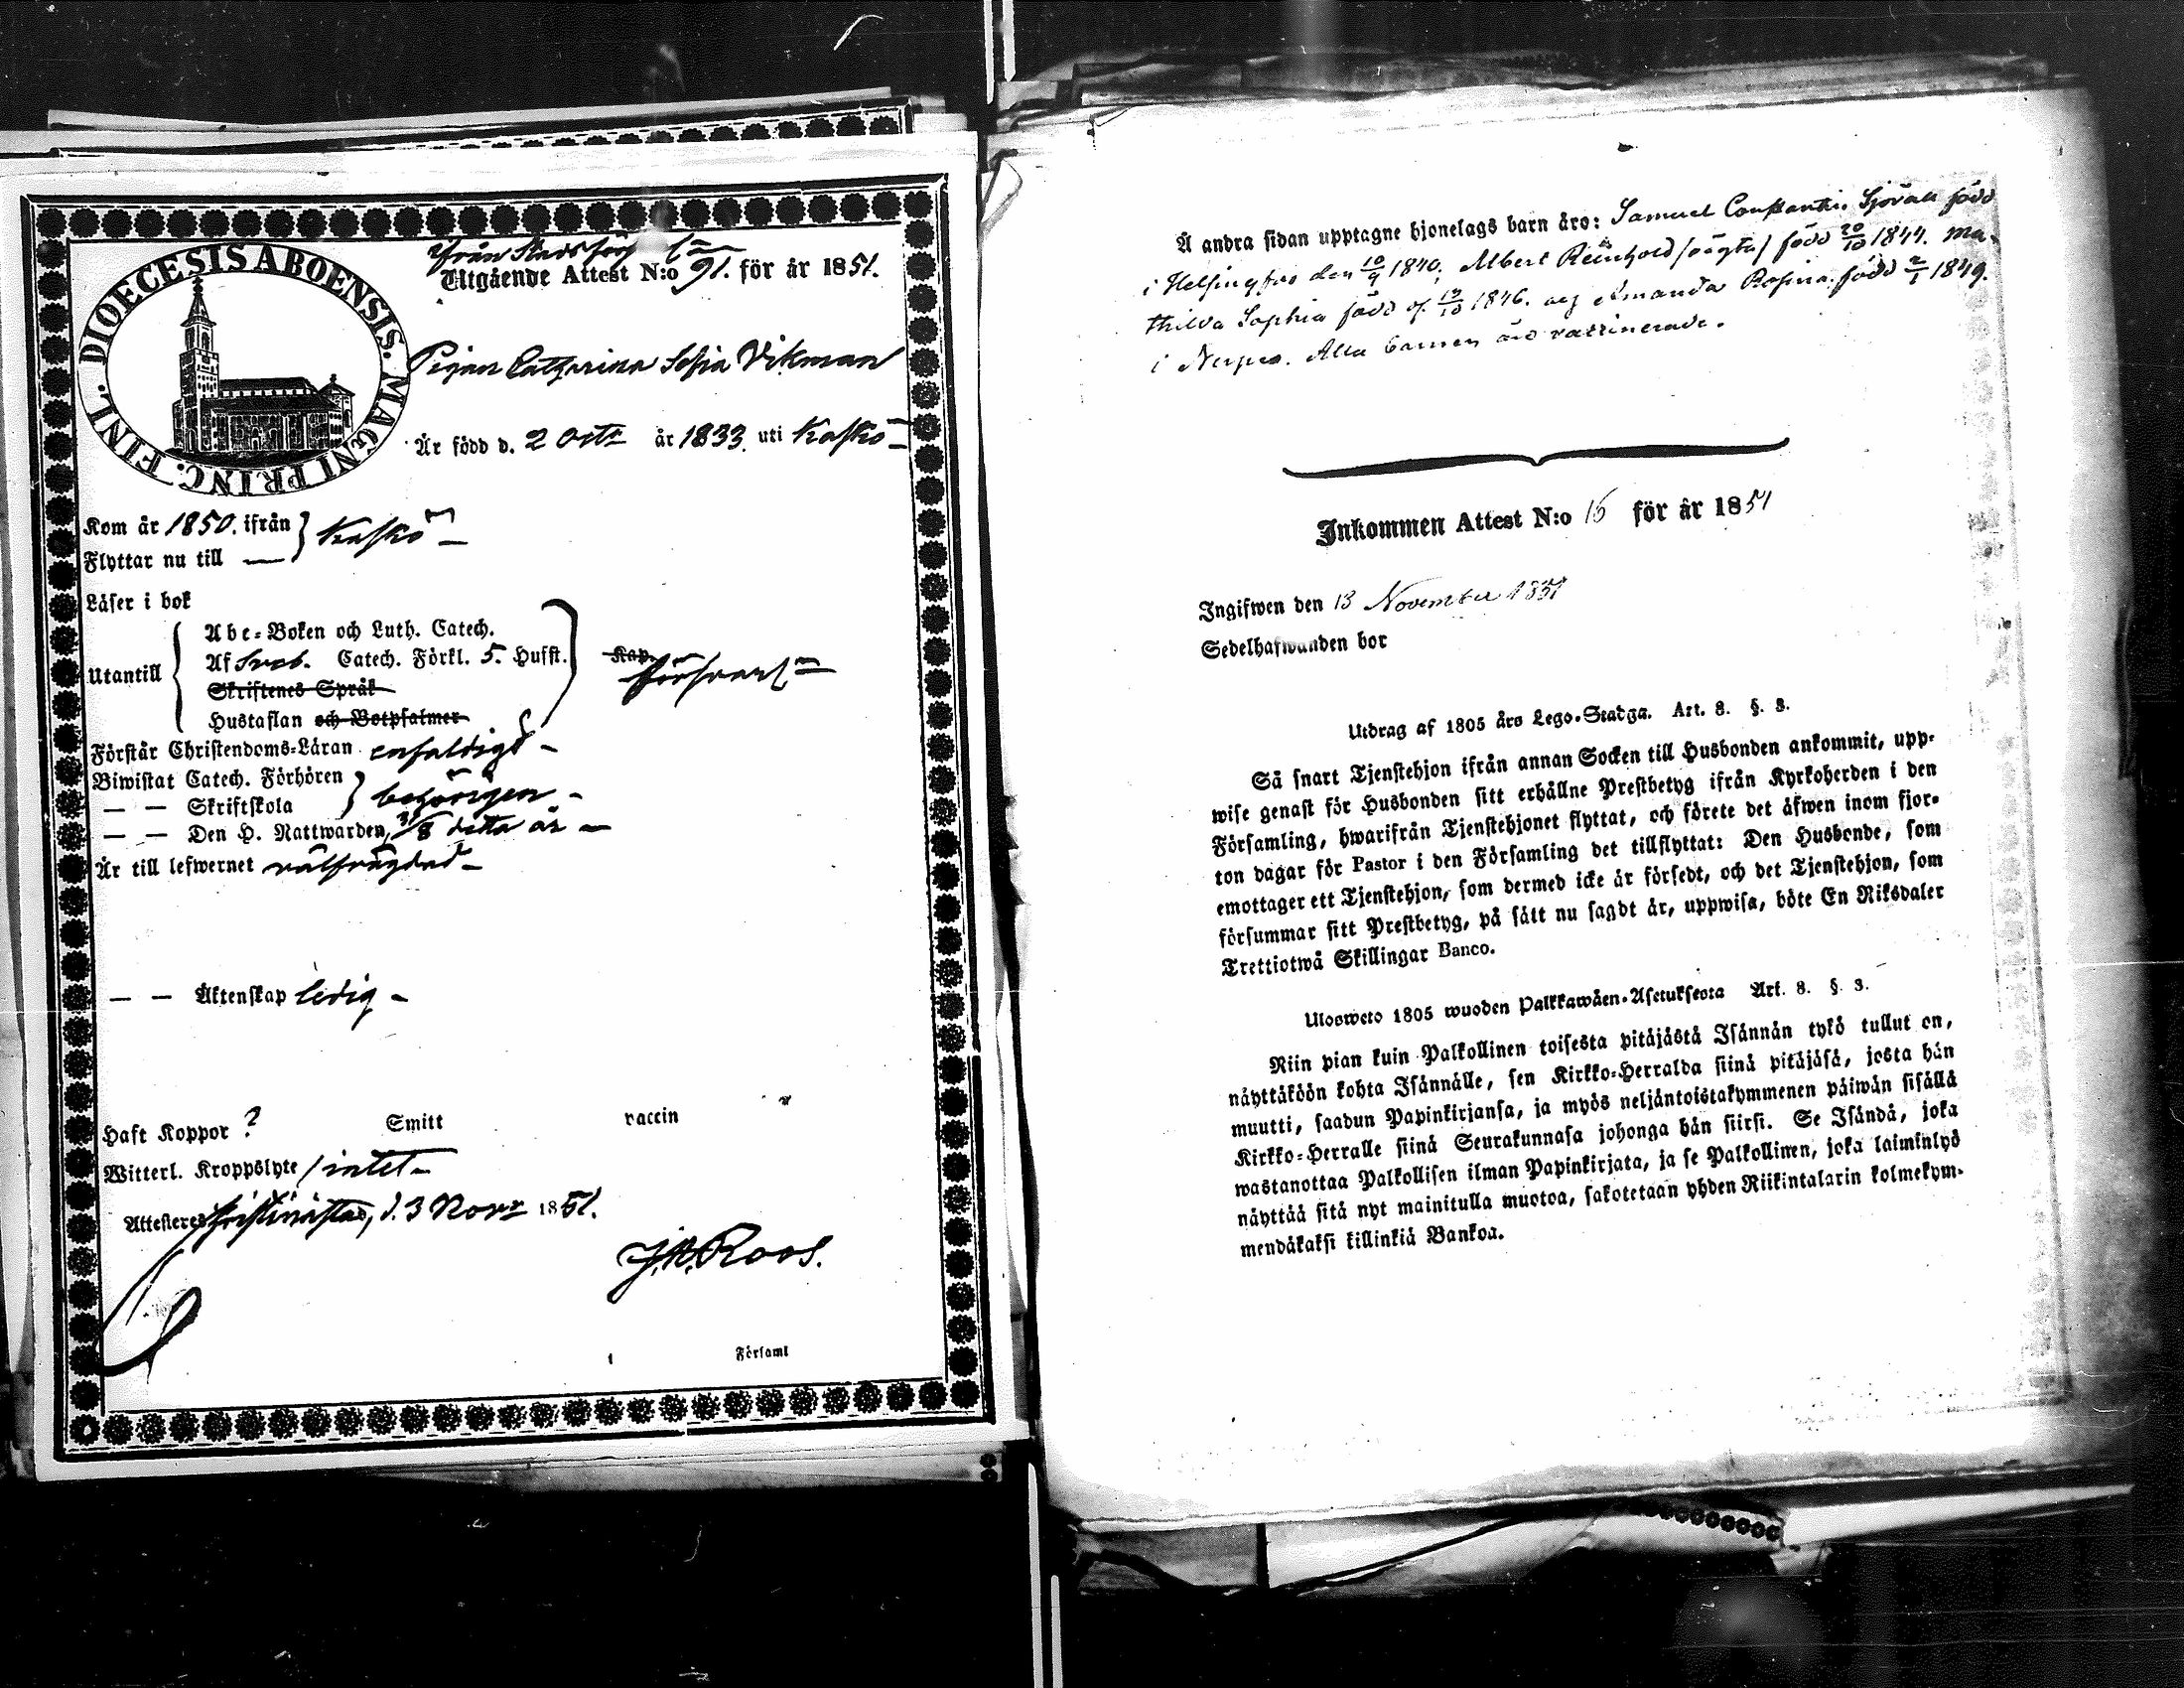 DIOECESIS ABOENSIS. MAGNI PRINC. FINL.
Ifrån Stadsförs
Utgående Attest N:o 91. för år 1851.
Pigan Catharina Sofia Vikman
Är född d. 2 Octr år 1833. uti Kaskö
Kom år 1850. ifrån } Kaskö
Flyttar nu till
Läser i bok
Utantill
Abc-Boken och Luth. Catech.
Af Sveb. Catech. Förkl. 5. Hufst.
Kap.
försvarl
Skriftenes Språk
Hustaflan och Botpsalmer
Förstår Christendoms-Läran enfaldigt
Biwistat Catech. Förhören } behörigen
— — Skriftskola
— — Den H. Nattwarden, 3/8 detta år
Är till lefwernet välfrägdad
— — Äktenskap ledig
Haft Koppor ? Smitt vaccin
Witterl. Kroppslyte intet
Attesteres Kristinæstad, d. 3 Novr 1851.
J.A. Roos.
Församl
Å andra sidan upptagne hjonelags barn äro: Samuel Sjövall född
i Helsingfors den 10/9 1840, Albert Reinhold (oägta) född 20/10 1844. Ma-
thilda Sophia född 12/10 1846. och Amanda Rosina född 2/1 1849.
i Nerpes. Alla barnen äro vaccinerade.
Inkommen Attest N:o 16 för år 1851
Ingifwen den 13 November 1851
Sedelhafwanden bor
Utdrag af 1805 års Lego-Stadga. Art. 8. §. 3.
Så snart Tjenstehjon ifrån annan Socken till Husbonden ankommit, upp-
wise genast för Husbonden sitt erhållne Prestbetyg ifrån Kyrkoherden i den
Församling, hwarifrån Tjenstehjonet flyttat, och förete det äfwen inom fjor-
ton dagar för Pastor i den Församling det tillflyttat: Den Husbonde, som
emottager ett Tjenstehjon, som dermed icke är försedt, och det Tjenstehjon, som
försummar sitt Prestbetyg, på sätt nu sagdt är, uppwisa, böte En Riksdaler
Trettiotwå Skillingar Banco.
Ulosweto 1805 wuoden Palkkawäen-Asetuksesta Art. 8. §. 3.
Niin pian kuin Palkollinen toisesta pitäjästä Isännän tykö tullut on,
näyttäköön kohta Isännälle, sen Kirkko-Herralda siinä pitäjäsä, josta hän
muutti, saadun Papinkirjansa, ja myös neljäntoistakymmenen päiwän sisällä
Kirkko-Herralle siinä Seurakunnasa johonga hän siirsi. Se Isändä, joka
wastanottaa Palkollisen ilman Papinkirjata, ja se Palkollinen, joka laiminlyö
näyttää sitä nyt mainitulla muotoa, sakotetaan yhden Riikintalarin kolmekym-
mendäkaksi killinkiä Bankoa.